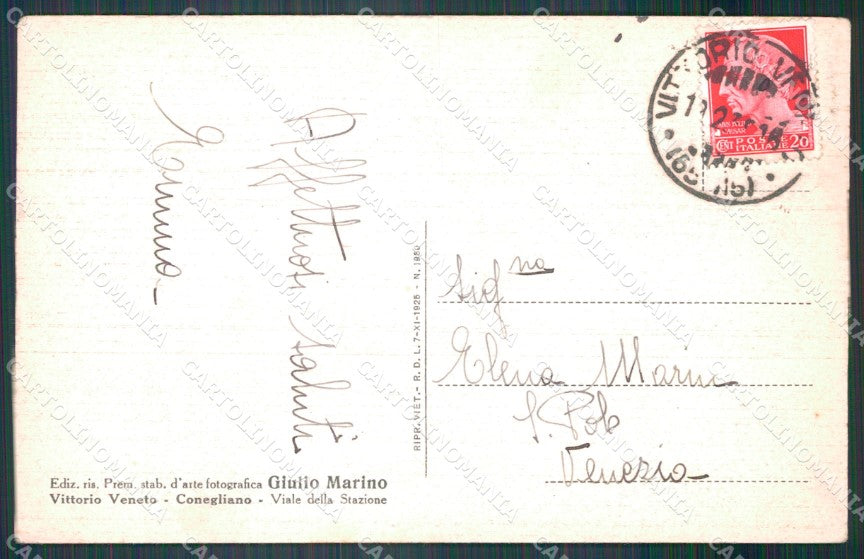 Affettuosi saluti
VITTORIO VENETO
POSTE
ITALIANE
CENT
20
CAESAR
RIPR. VIET. - R. D. L. 7-XI-1925 - N. 1950
Signa
Elena Marin
S. Polo
Venezia
Ediz. ris. Prem. stab. d'arte fotografica Giulio Marino
Vittorio Veneto - Conegliano - Viale della Stazione
CARTOLINOMANIA